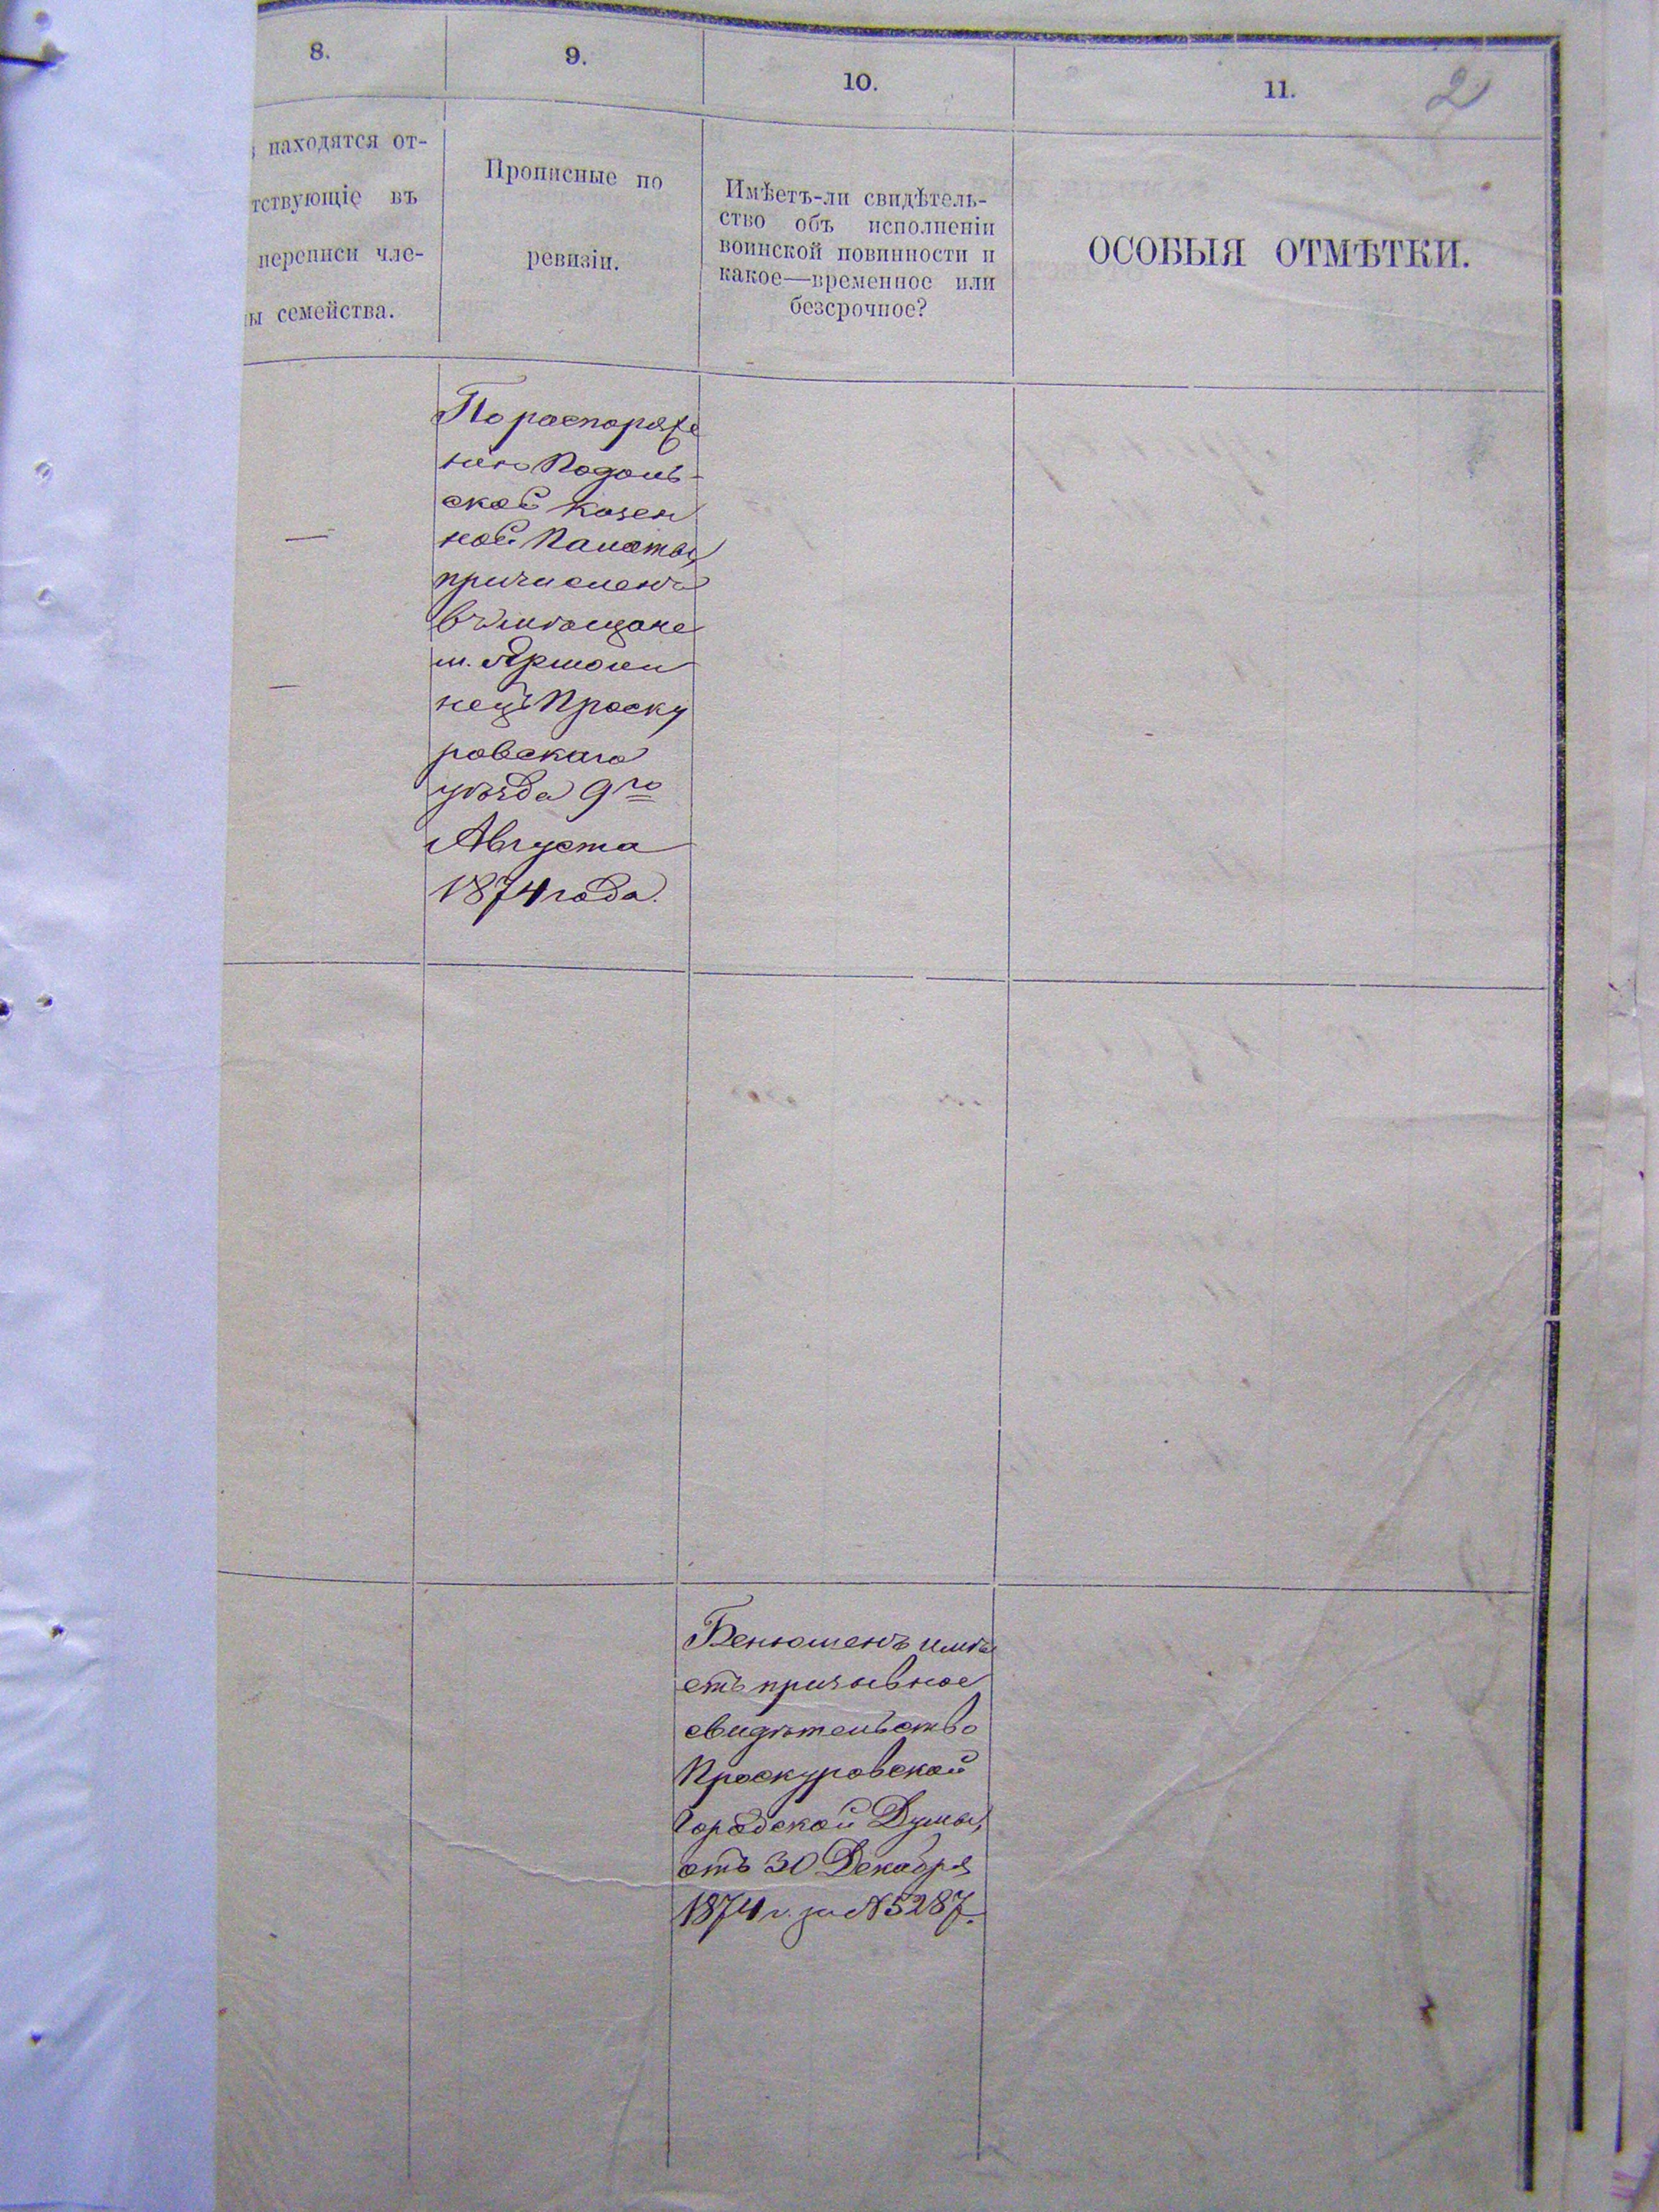 8.
9.
10.
11.
2
находятся от-
тствующіе въ
переписи чле-
ы семейства.
Прописные по
ревизіи.
Имѣетъ-ли свидѣтель-
ство объ исполненіи
воинской повинности и
какое—временное или
безсрочное?
ОСОБЫЯ ОТМѢТКИ.
По распоряже
нію Подоль-
ской Казен
ной Палаты,
причисленъ
въ мѣщане
м. Ярмоли
нецъ Проску
ровскаго
уѣзда 9го
Августа
1874 года.
Бенюменъ имѣ
етъ призывное
свидѣтельство
Проскуровской
Городской Думы,
отъ 30 Декабря
1874 г. за №5287.